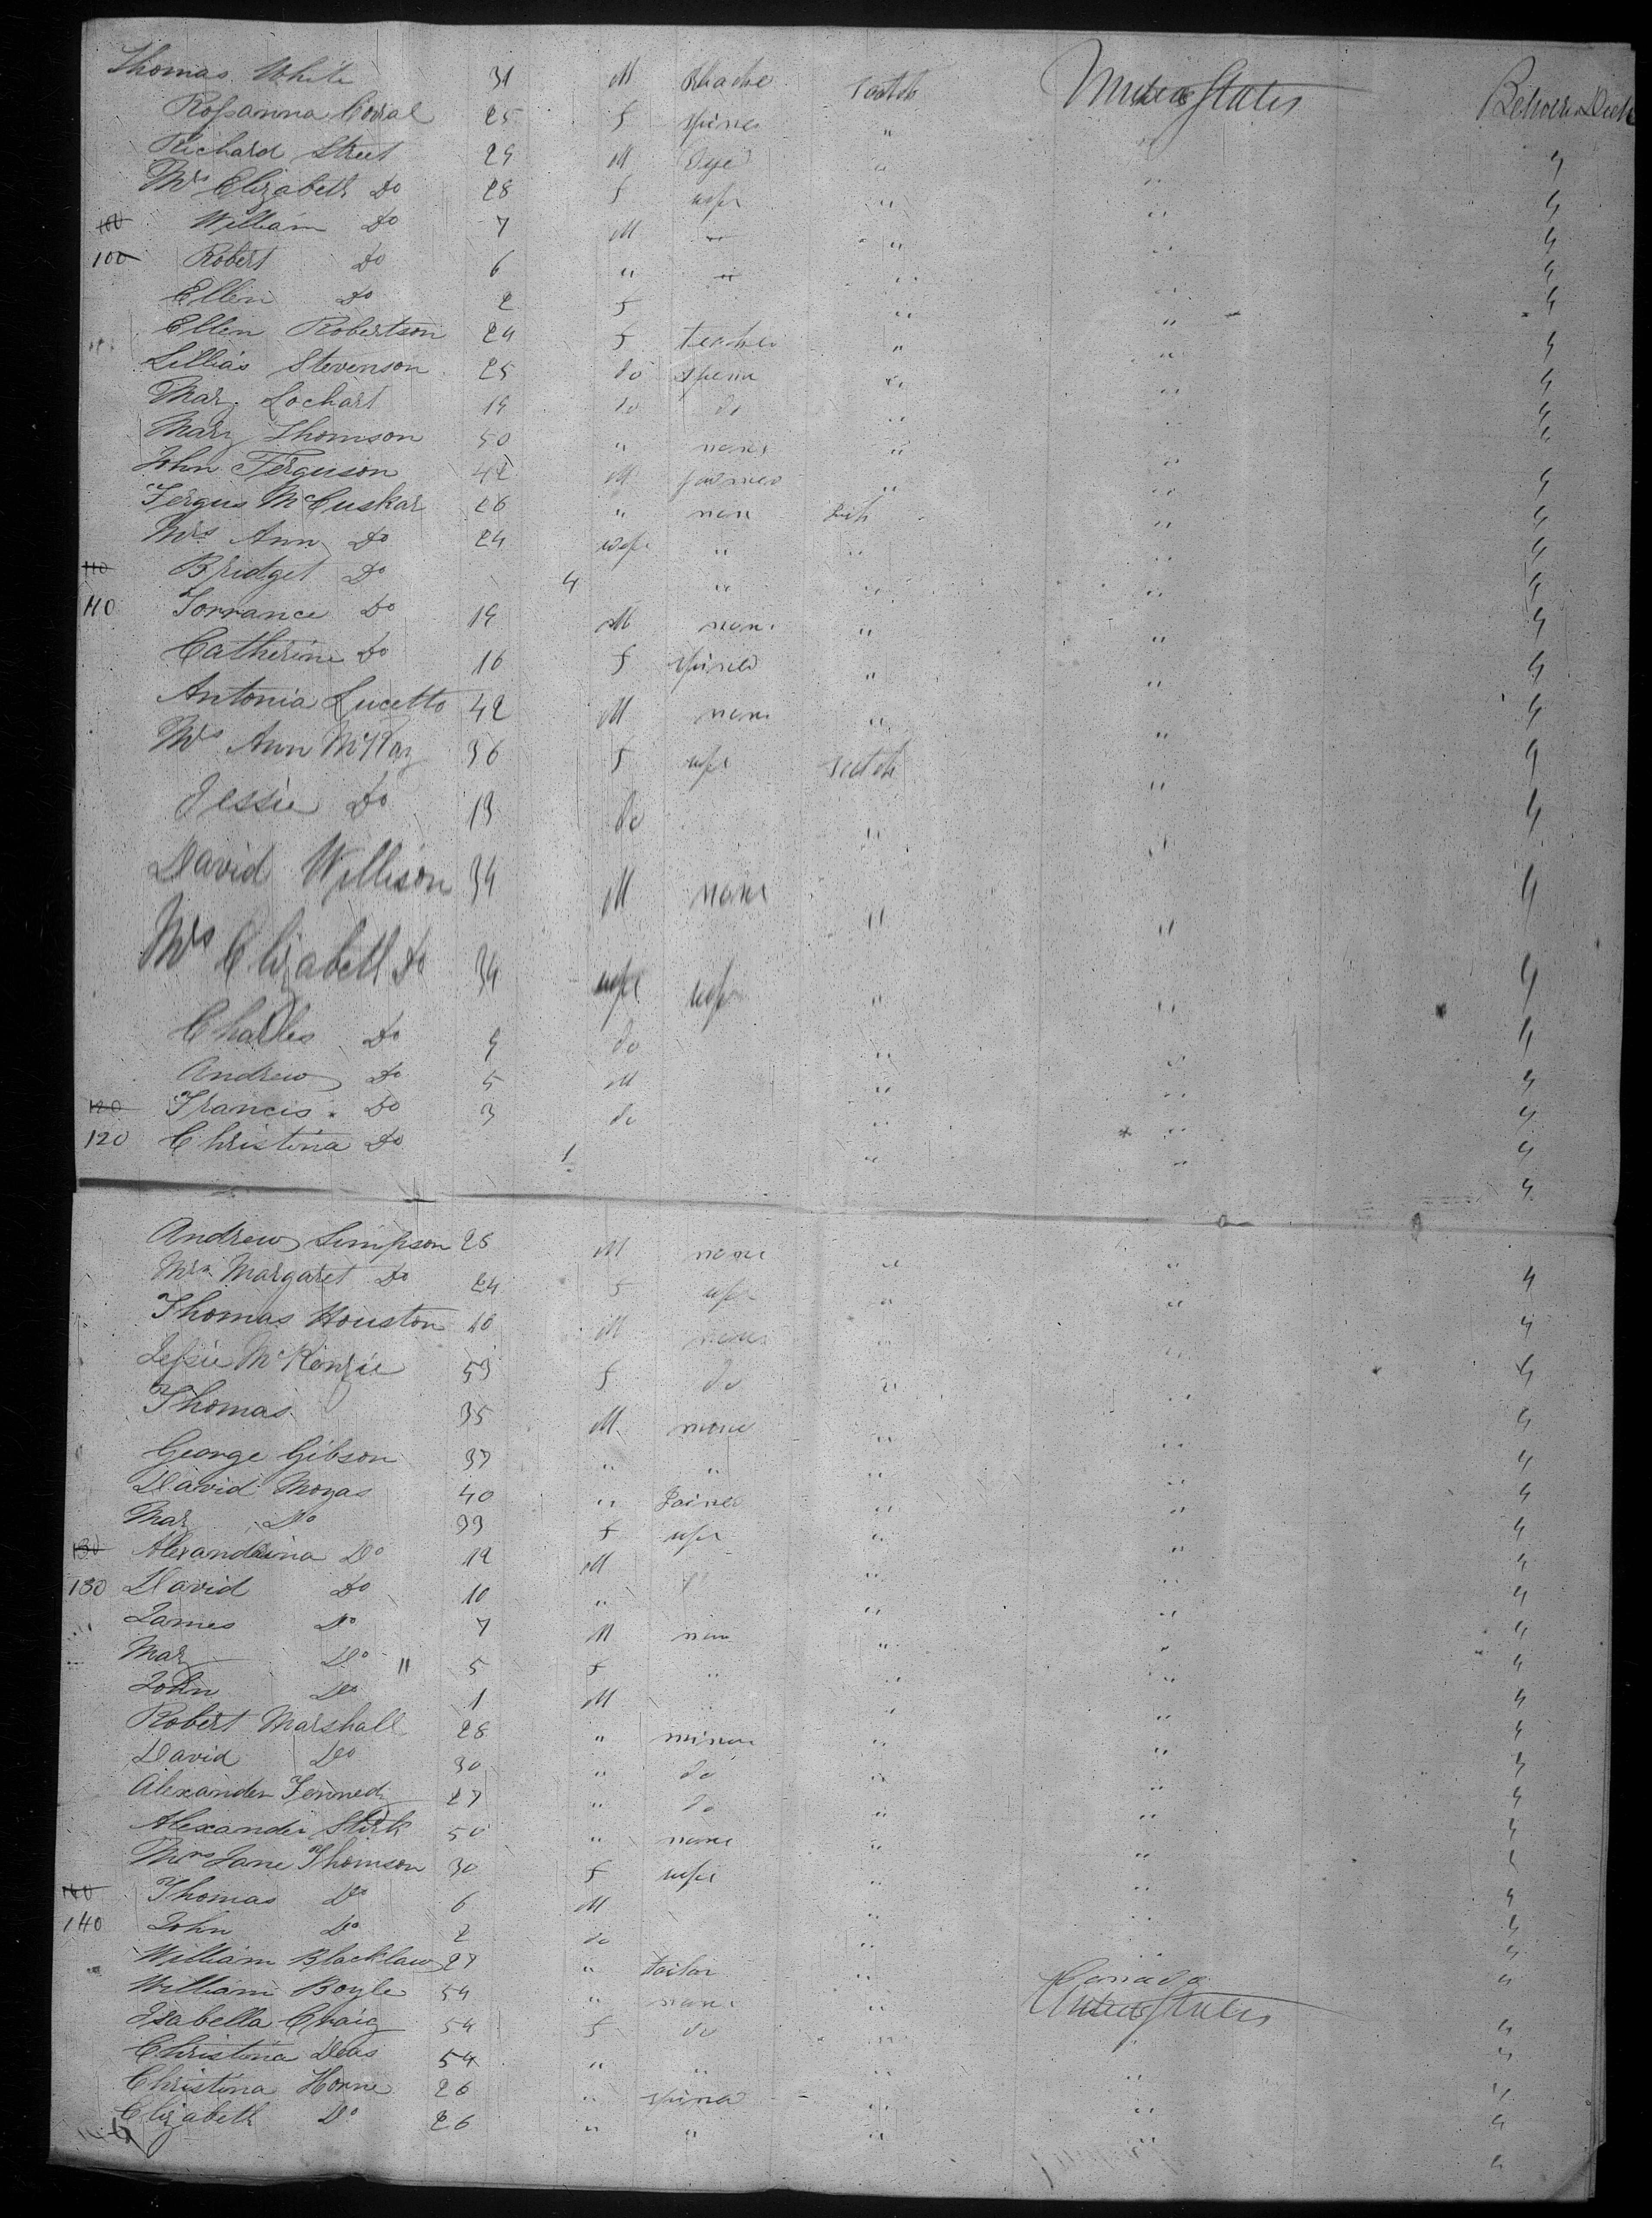 Thomas White 31 M Scotch United States Between Decks
Rossanna 25 F spins " "
Richard Street 29 M Dye " " "
Mrs Elizabeth Do 28 F wife " " "
100 William Do 7 M " " "
100 Robert Do 6 " " " " "
Ellen Do 2 F " " "
Ellen Robertson 24 F teacher " " "
Lillias Stevenson 25 do " " "
Mary Lochart 19 do do " " "
Mary Thomson 50 " none " " "
John Ferguson 42 M farmer " " "
Fergus McCuskar 26 " none Irish " "
Mrs Ann Do 24 wife " " " "
110 Bridget Do 4 " " " "
110 Torrance Do 19 M none " " "
Catherine Do 16 F spines " " "
Antonia Lucetto 42 M none " " "
Mrs Ann McKay 36 F wife Scotch " "
Jessie Do 13 do " " "
David Willison 34 M none " " "
Mrs Elizabeth Do 34 wife wife " " "
Charles Do 9 do " " "
Andrew Do 5 M " " "
120 Francis Do 3 do " " "
120 Christina Do 1 " " "
Andrew Simpson 28 M none " " "
Mrs Margaret Do 24 F wife " " "
Thomas Houston 40 M none " " "
Jessie McKenzie 53 F do " " "
Thomas 35 M none " " "
George Gibson 37 " " " " "
David Moyas 40 " Joiner " " "
Mary Do 33 F wife " " "
130 Alexandrina Do 12 M " " "
130 David Do 10 " " " "
James Do 7 M none " " "
Mary Do " 5 F " " " "
John Do 1 M " " " "
Robert Marshall 28 " miner " " "
David Do 30 " do " " "
Alexander Fennedy 27 " do " " "
Alexander Stirk 50 " none " " "
Mrs Jane Thomson 30 F wife " " "
140 Thomas Do 6 M " " "
140 John Do 2 do " " "
William Blacklaw 27 " tailor " Canada "
William Boyle 54 " none " United States
Isabella Craig 54 F do " " "
Christina Deas 54 " " " " "
Christina Horne 26 " spins " " "
Elizabeth Do 26 " " " " "
146